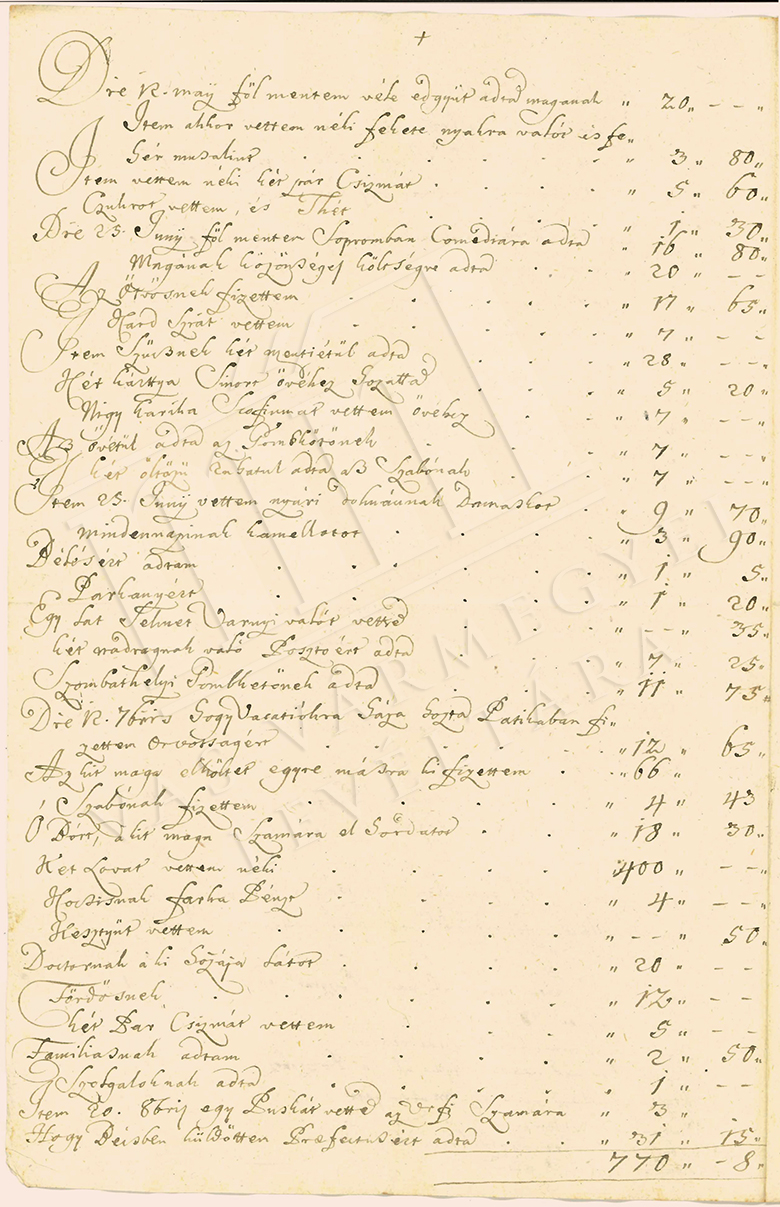 +
Die 12. May föl mentem véle edgyüt adta maganak " 20 " – – "
Item akkor vettem néki fekete nyakra valót és fe„
hér musalint " 3 " 80 "
Item vettem néki két pár Csizmát " 5 " 60 "
Czukrot vettem, és Thét " 1 " 30 "
Die 25. Junÿ föl menten Sopromban Comediára adta " 16 " 80 "
Magának közönséges költségre adta " 20 " – –
Az Ötvösnek fizettem " 17 " 65 "
Kard vettem " 7 " – –
Item Szücsnek két mentiétül adta " 28 " – – "
Két kártya Sinort övéhez hozatta " 5 " 20 "
Négy karika vettem övéhez " 7 " – – "
Az övétül adta az Gombkötönek " 7 " – – "
két öltözü ruhatul adta az Szabónak " 7 " – – "
Item 25. Junÿ vettem nyári dolmánnak Damaskot " 9 " 70 "
mindennapinak kamellotot " 3 " 90 "
Bélésért adtam " 1 " 5 "
Parhanyért " 1 " 20 "
Egy lat Selmet Varnyi valót vette " – – " 35 "
két nadragnak való Posztoért adta " 7 " 25 "
Szombathelyi Gombkötönek adta " 11 " 75 "
Die 12. 7bris hogy Vacatiókra háza hozta Patikaban fi„
zettem Orvosságért " 12 " 65 "
Az kit maga elköltet egyre másra ki fizettem " 66 "
Szabónak fizettem " 4 " 43
Ó Bórt, á kit maga Szamára el hordatot " 18 " 30 "
Ket Lovat vettem néki " 400 " – – "
Kocsisnak farka Pénzt " 4 " – – "
Kesztyüt vettem " – – " 50 "
Doctornak á ki hozzája látot " 20 " – –
Fördösnek " 12 " – –
két Par Csizmát vettem " 5 " – –
Familiasnak adtam " 2 " 50 "
Szolgaloknak adta " 1 " – –
Item 20. 8bris egy Puskát vette az Szamára " 3 "
Hogy Bécsben küldöttem Præfectusért adta " 31 " 15 "
770 " – 8 "
VAS VÁRMEGYEI
LEVÉLTÁRA